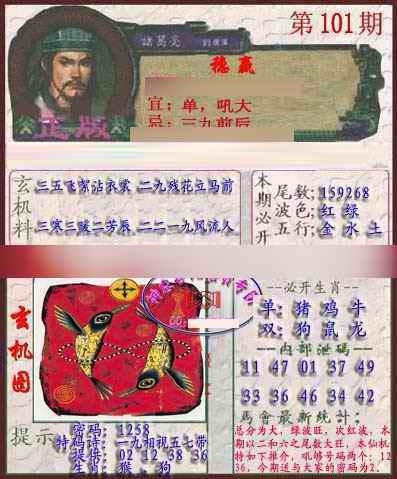 第101期
諸葛亮
稳赢
宜：单，吼大
忌：三九前后
正版
玄机料
三五飞絮沾衣裳 二九残花立马前
三寒三暖二芳辰 二二一九风流人
本期必开
尾数：159268
波色：红 绿
五行：金 水 土
玄机图
必开生肖
单：猪 鸡 牛
双：狗 鼠 龙
内部泄码
11 47 01 37 49
33 36 46 34 42
馬會最新统计：
总分为大，绿波旺，次红波，本
期以二和六之尾数大旺，本仙机
特如下推介，吼够号码两个：12
36，今期送与大家的密码为2．
提示
密码：1258
特码诗：一九相视五七带
提倍：02 12 38 36
生肖：猴．狗